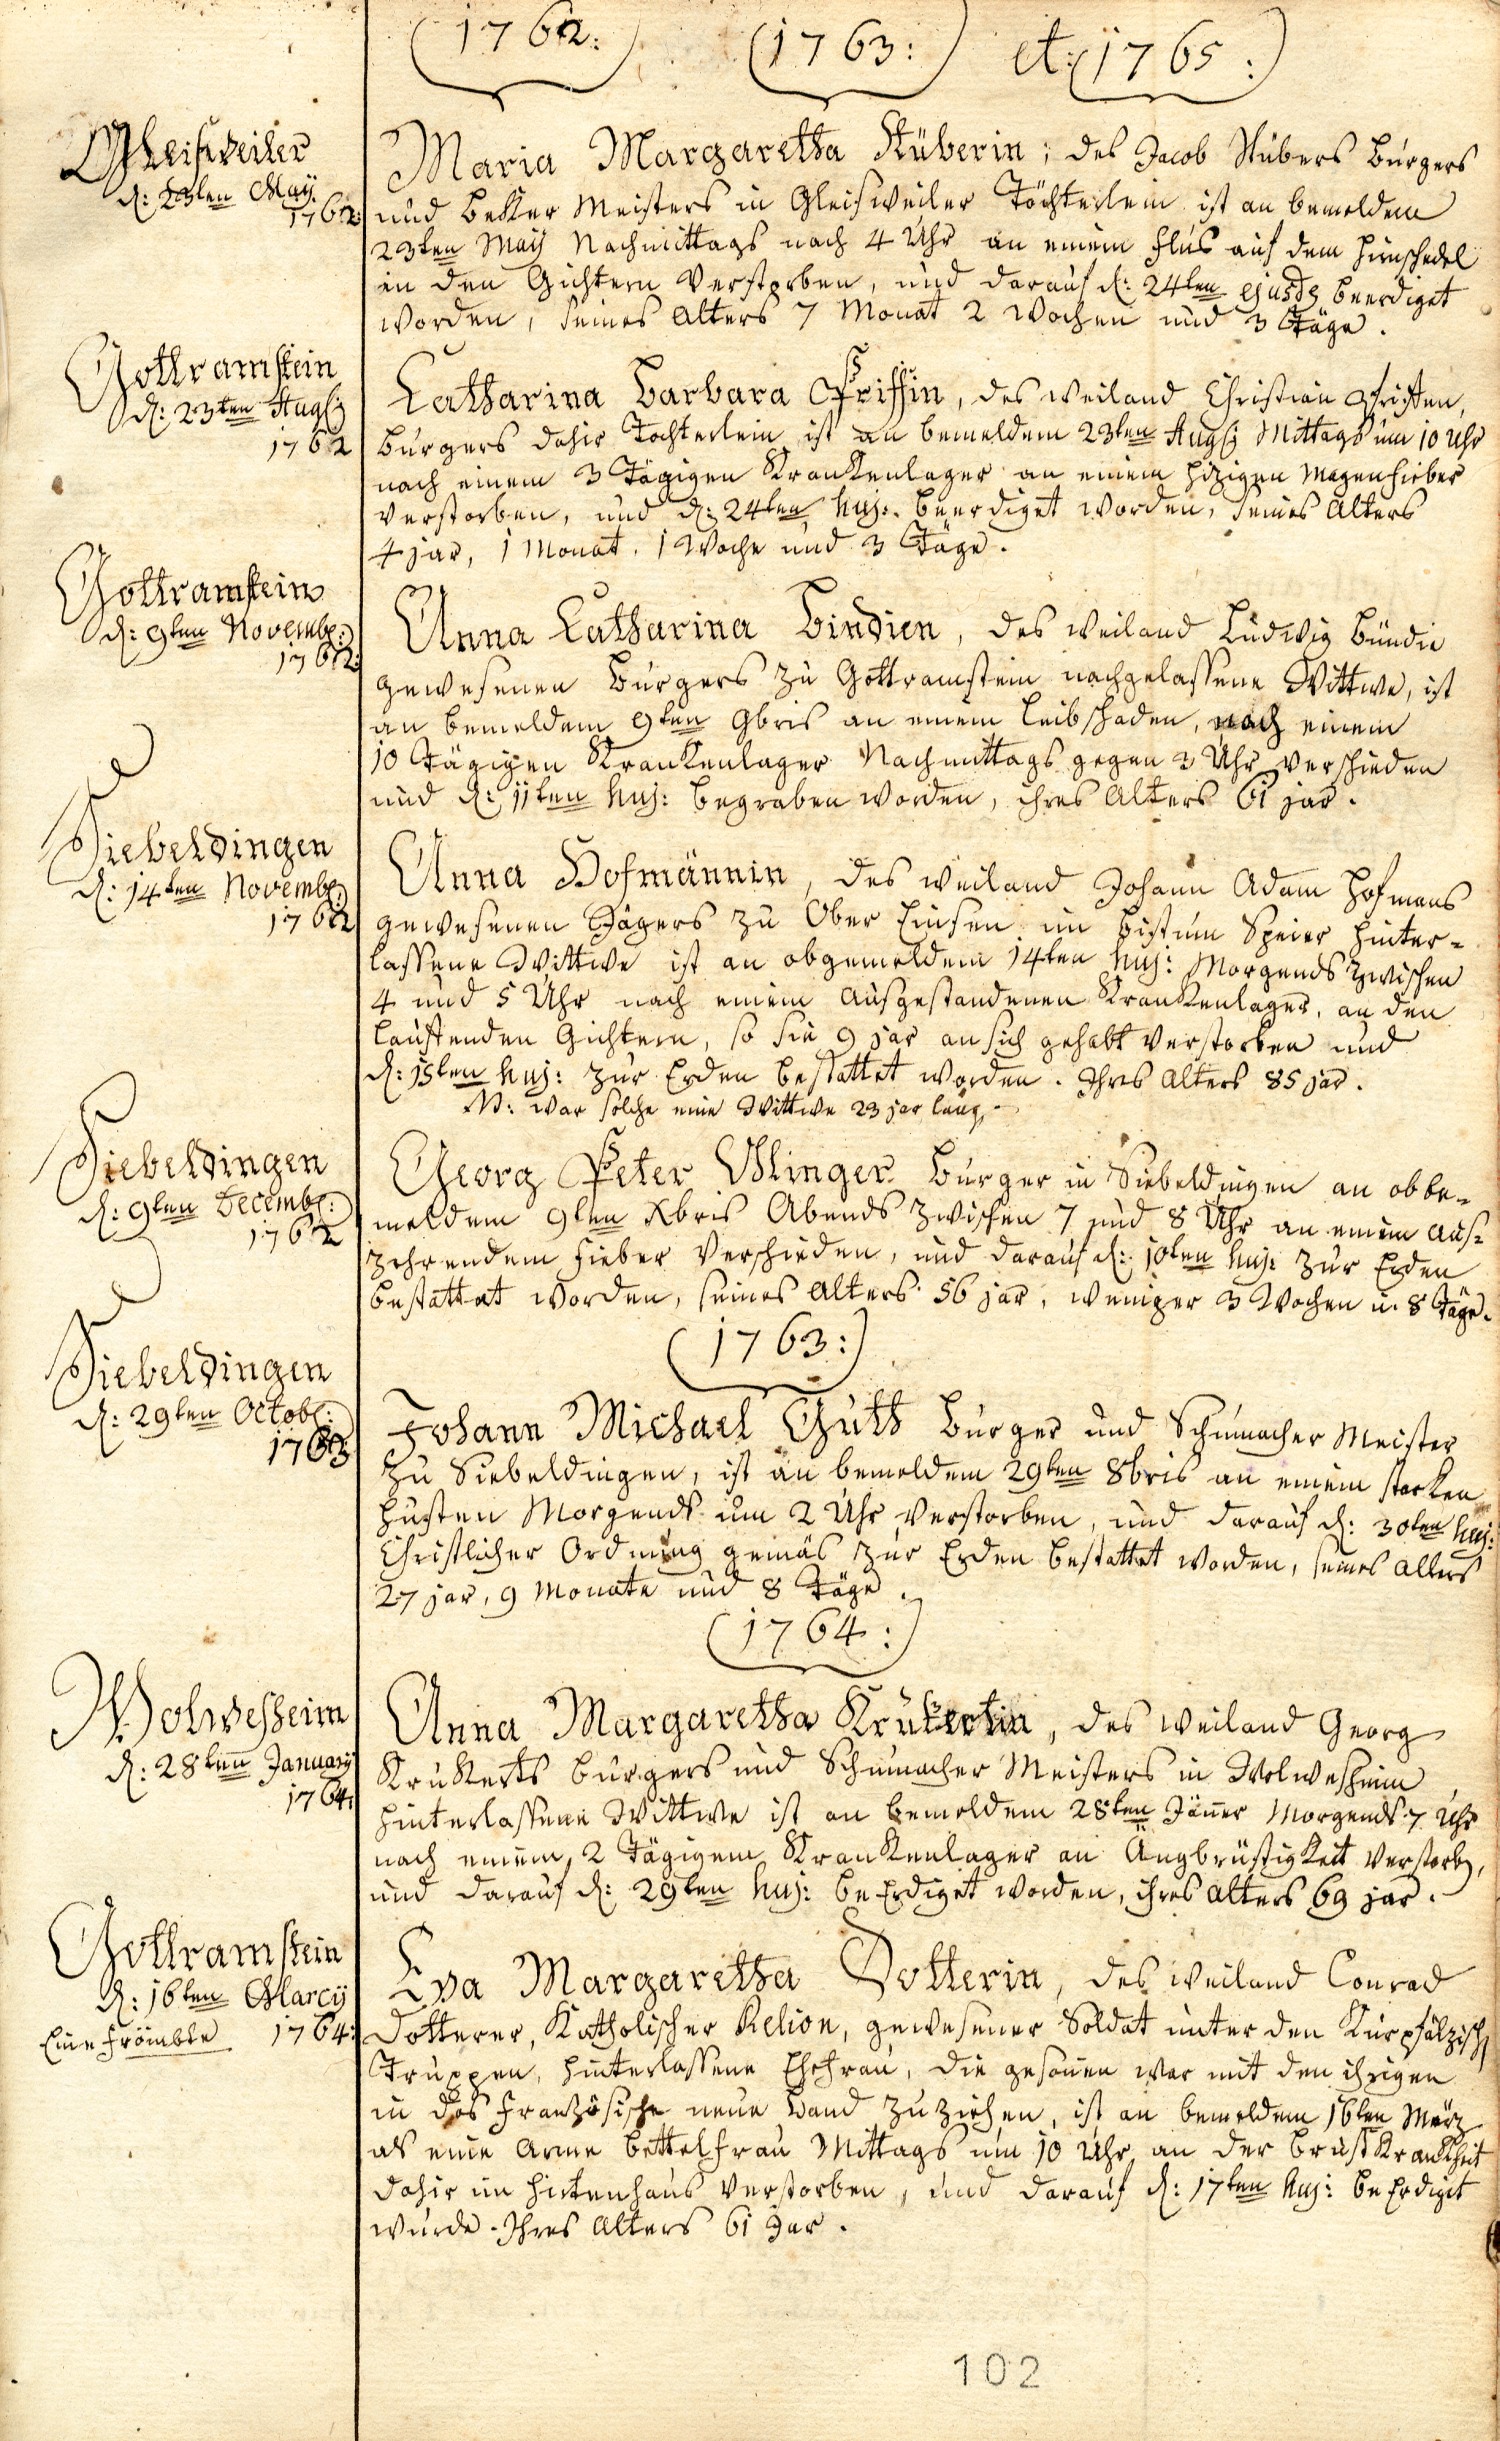 (1762:) (1763:) et (1765:)
Gleisweiler
d: 23ten Maij
1762:
Maria Margaretha Stüberin; des Jacob Stübers Burgers
und Becker Meisters in Gleisweiler Töchterlein ist an bemeldem
23ten Maij Nachmittags nach 4 Uhr an einem Flus auf dem Hirnschedel
in den Gichtern verstorben, und darauf d: 24ten ejusdq beerdiget
worden, seines Alters 7 Monat 2 Wochen und 3 Täge.
Gottramstein
d: 23ten Aug:
1762
Catharina Barbara Pfriffin, des weiland Christian
Burgers dahir Tochterlein ist an bemeldem 23ten Aug: Mittags um 10 Uhr
nach einem 3 Tägigen Krankenlager an einem hizigen Magenfieber
verstorben, und d: 24ten huj:. beerdiget worden, seines Alters
4 jar, 1 Monat, 1 Woche und 3 Täge.
Gottramstein
d: 9ten Novemb:
1762:
Anna Catharina Bindien, des weiland Ludwig Bündie
gewesenen Burgers zu Gottramstein nachgelassene Wittwe, ist
an bemeldem 9ten 9bris an einem Leibschaden, nach einem
10 Tägigen Krankenlager Nachmittags gegen 3 Uhr verschieden
und d: 11ten huj: begraben worden, ihres Alters 61 jar.
Siebeldingen
d: 14ten Novemb:
1762
Anna Hofmännin, des weiland Johann Adam Hofmans
gewesenen Jägers zu Ober Linsen im Bistum Speier hinter-
lassene Wittwe ist an obgemeldem 14ten huj: Morgends zwischen
4 und 5 Uhr nach einem ausgestandenen Krankenlager, an den
lauffenden Gichtern, so sie 9 jar an sich gehabt verstorben und
d: 15ten huj: zur Erden bestattet worden. Ihres Alters 85 jar.
NB: war solche eine Wittwe 23 jar lang.
Siebeldingen
d: 9ten Decemb:
1762
Georg Peter Uslinger Burger in Siebeldingen an obbe-
meldem 9ten Xbris Abends zwischen 7 und 8 Uhr an einem aus-
zehrendem Fieber verschieden, und darauf d: 10ten huj: zur Erden
bestattet worden, seines Alters 56 jar, weniger 3 Wochen u. 8 Täge.
(1763:)
Siebeldingen
d: 29ten Octob:
1763
Johann Michael Guth Burger und Schumacher Meister
zu Siebeldingen, ist an bemeldem 29ten 8bris an einem starken
Husten Morgends um 2 Uhr verstorben, und darauf d: 30ten huj:
Christlicher Ordnung gemäs zur Erden bestattet worden, seines Alters
27 jar, 9 Monate und 8 Täge.
(1764:)
Wolwesheim
d: 28ten January
1764:
Anna Margaretha Krukertin, des weiland Georg
Krukerts Burgers und Schumacher Meisters in Wolwesheim
hinterlassene Wittwe ist an bemeldem 28ten Jäner Morgends 7 Uhr
nach einem 2 Tägigem Krankenlager an Ängbrüstigkeit verstorb,
und darauf d: 29ten huj: beErdiget worden, ihres Alters 69 jar.
Gottramstein
d: 16ten Marcij
Eine frömbte 1764:
Eva Margaretha Dotterin, des weiland Conrad
Dotterer, Katholischer Relion, gewesener Soldat unter den Kurpfälzisch
Truppen, hinterlassene Ehefrau, die gesonen war mit den ihrigen
in das Französische neue Land zu ziehen, ist an bemeldem 16ten März
als eine arme Bettelfrau Mittags um 10 Uhr an der Brust Krankheit
dahir im Hirtenhaus verstorben, und darauf d: 17ten huj: beErdiget
wurde. Ihres Alters 61 Jar.
102